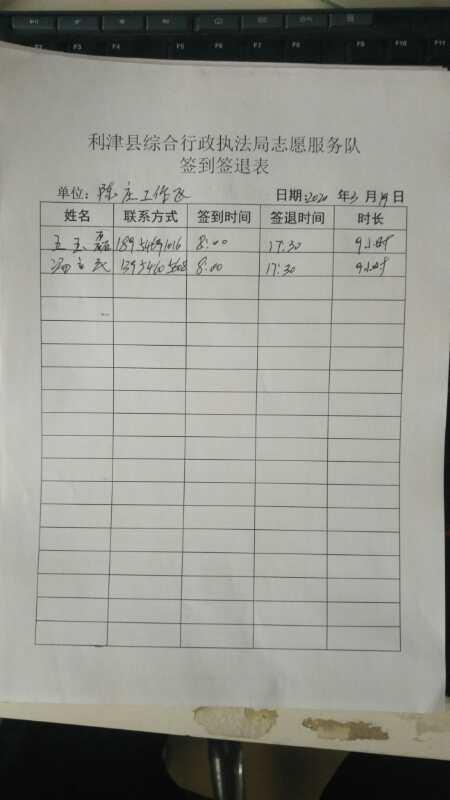 利津县综合行政执法局志愿服务队
签到签退表
单位: 陈庄工作区 日期: 2020 年3 月19日
姓名 联系方式 签到时间 签退时间 时长
王玉磊 8:00 17:30 9小时
8:00 17:30 9小时